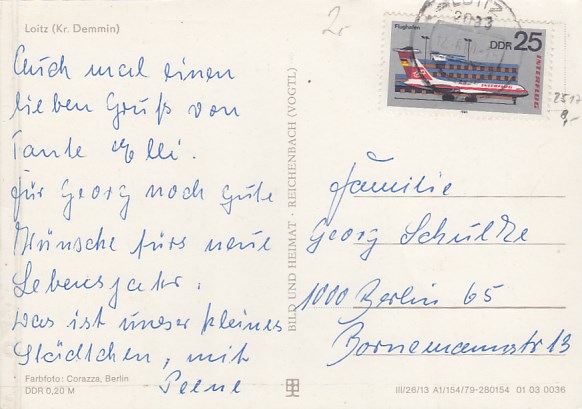 Loitz (Kr. Demmin)
Auch mal einen
lieben Gruß von
Tante Elli.
Für Georg noch gute
Wünsche fürs neue
Lebensjahr.
Das ist unser kleines
Städtchen, mit
Peene
Farbfoto: Corazza, Berlin
DDR 0,20 M
BILD UND HEIMAT · REICHENBACH (VOGTL)
LOITZ
2033
Flughafen
DDR 25
INTERFLUG
INTERFLUG
2517
Familie
Georg Schulze
1000 Berlin 65
Bornemannstr 13
III/26/13 A1/154/79-280154 01 03 0036